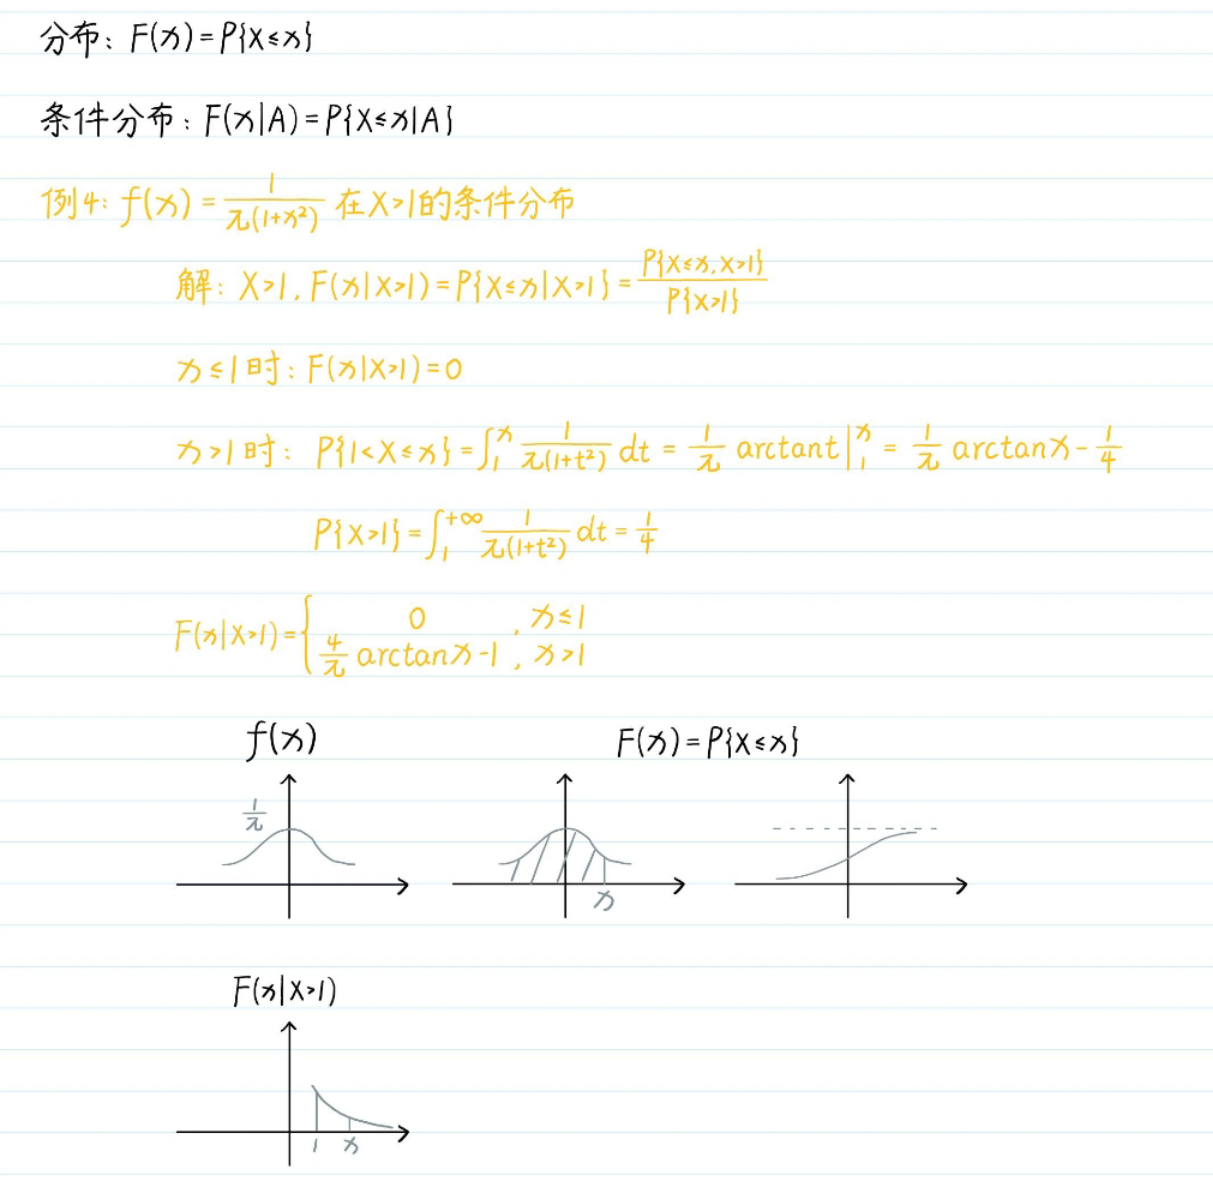 分布：F(x)=P{X≤x}
条件分布：F(x|A)=P{X≤x|A}
例4：f(x)=1/π(1+x²) 在X>1的条件分布
解：X>1，F(x|X>1)=P{X≤x|X>1}=P{X≤x,X>1}/P{X>1}
x≤1时：F(x|X>1)=0
x>1时：P{1<X≤x}=∫₁ˣ 1/π(1+t²) dt = 1/π arctant|₁ˣ = 1/π arctanx-1/4
P{X>1}=∫₁⁺∞ 1/π(1+t²) dt=1/4
F(x|X>1)={ 0 , x≤1
4/π arctanx-1 , x>1
f(x) F(x)=P{X≤x}
1/π
x
F(x|X>1)
1 x